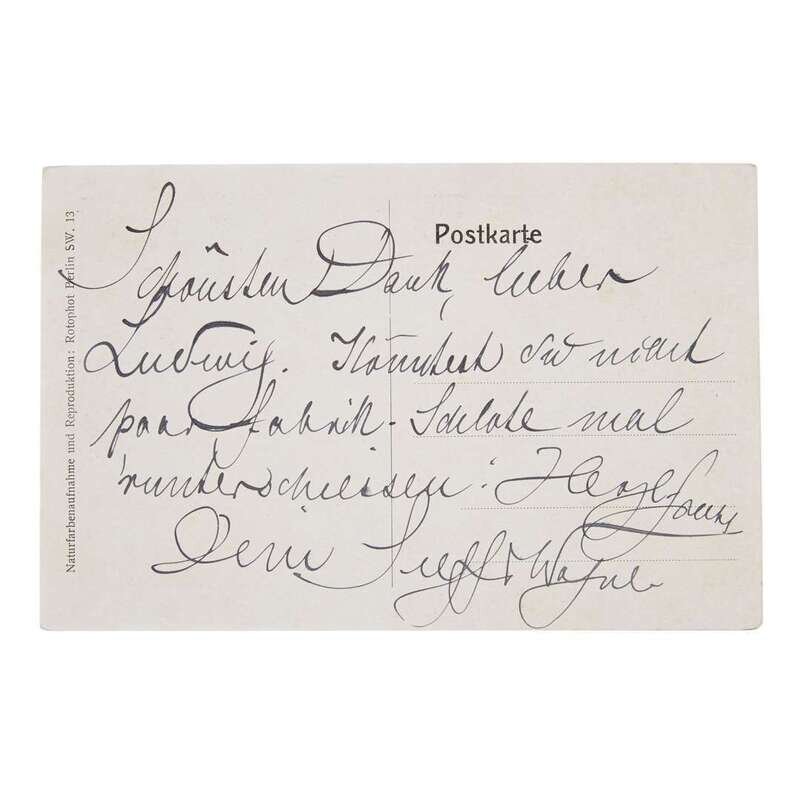 Naturfarbenaufnahme und Reproduktion: Rotophot Berlin SW. 13
Postkarte
Schönsten Dank, lieber
Ludwig. Könntest du nicht
paar Fabrik-Schlote mal
'runterschiessen!
Dein Siegfr Wagner